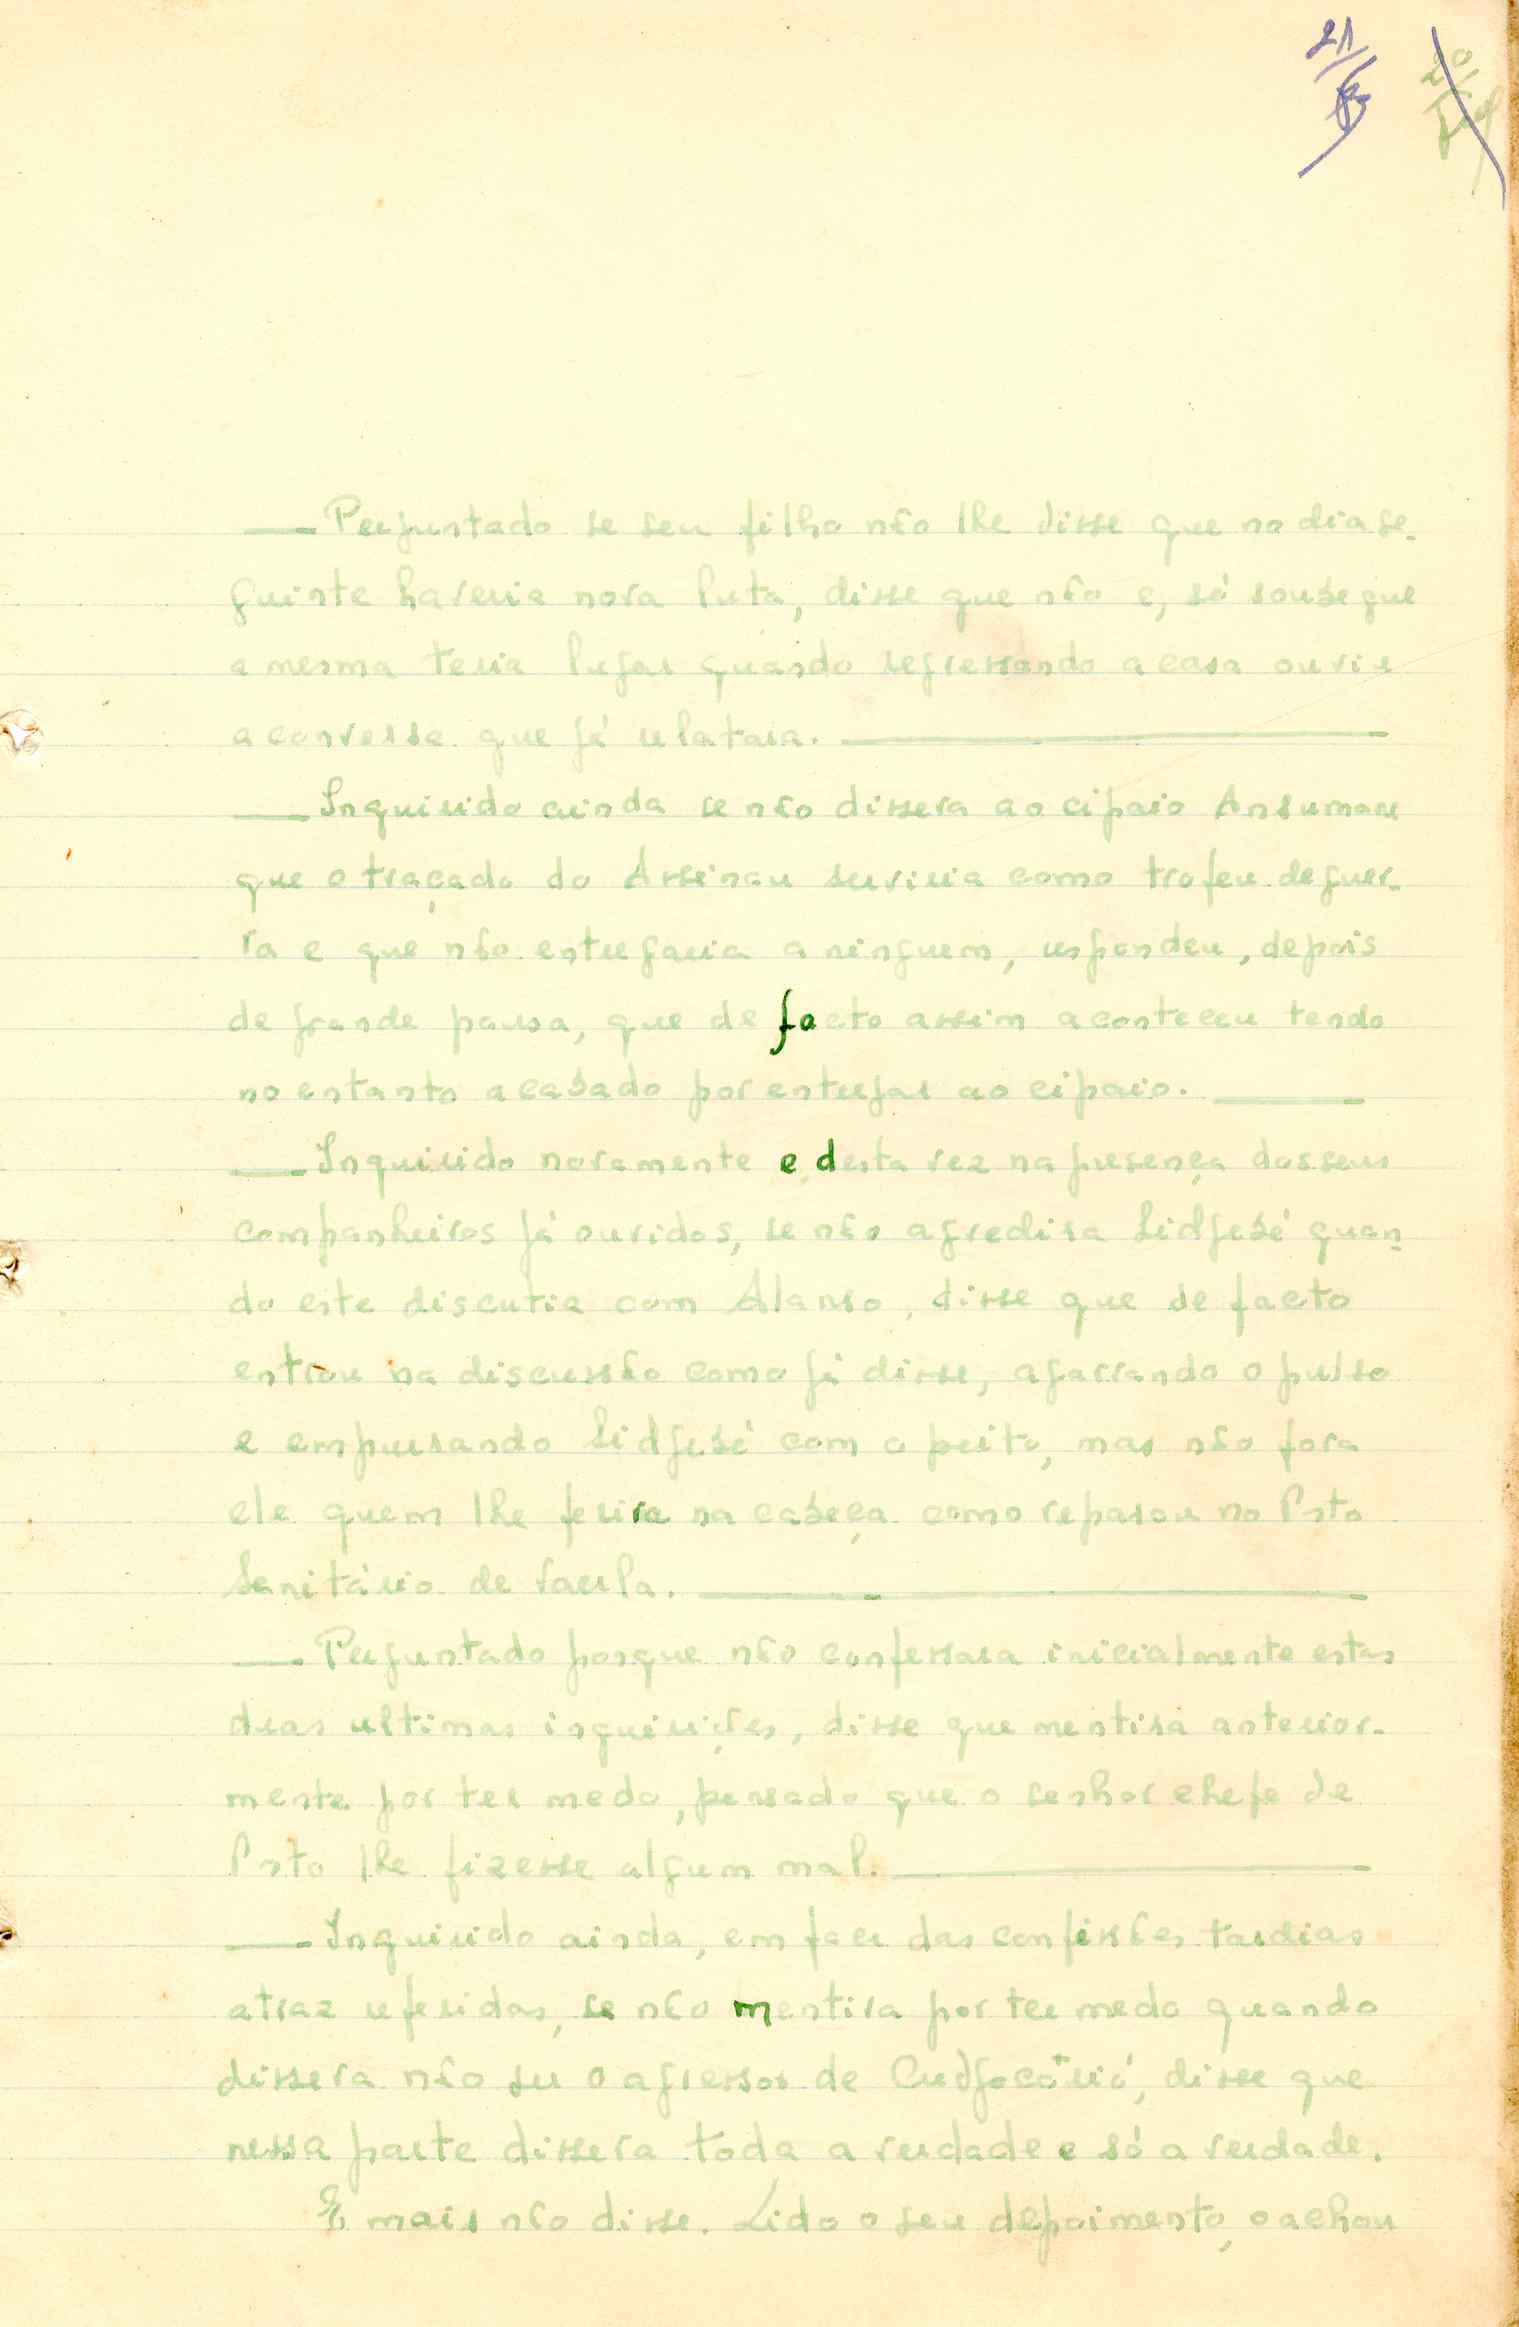 21
20
— Perguntado se seu filho não lhe disse que no dia se-
guinte haveria nova luta, disse que não e, só soube que
a mesma teria lugar quando regressando a casa ouviu
a conversa que já relatara. —
— Inquirido ainda se não dissera ao cipaio Ansumane
que o traçado do Assinau serviria como trofeu de guer-
ra e que não entregaria a ninguem, respondeu, depois
de grande pausa, que de facto assim aconteceu tendo
no entanto acabado por entregar ao cipaio. —
— Inquirido novamente e, desta vez na presença dos seus
companheiros já ouvidos, se não agredira Sidjubé quan-
do este discutia com Alanso, disse que de facto
entrou na discussão como já disse, agarrando o pulso
e empurrando Sidjubé com o peito, mas não fora
ele quem lhe ferira na cabeça como reparou no Psto
Sanitário de
— Perguntado porque não confessara inicialmente estas
duas ultimas inquirições, disse que mentira anterior-
mente por ter medo, pensado que o senhor chefe de
Psto lhe fizesse algum mal. —
— Inquirido ainda, em face das confissões tardias
atraz referidas, se não mentira por ter medo quando
dissera não ser o agressor de disse que
nessa parte dissera toda a verdade e só a verdade.
E mais não disse. Lido o seu depoimento, o achou